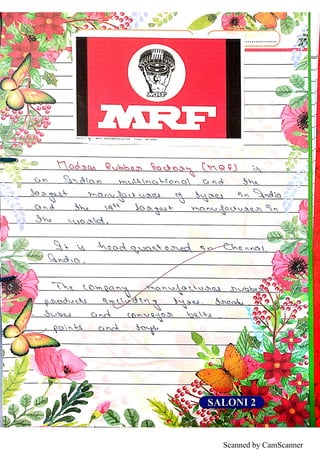 MRF
Madras Rubber Factory (MRF) is
an Indian multinational and the
largest manufactures of tyres in India
and the 14th largest manufacturer in
the world.
It is headquartered in Chennai,
India.
The company manufactures rubber
products including tyres, treads
tubes and conveyor belts
paints and toys
SALONI 2
Scanned by CamScanner